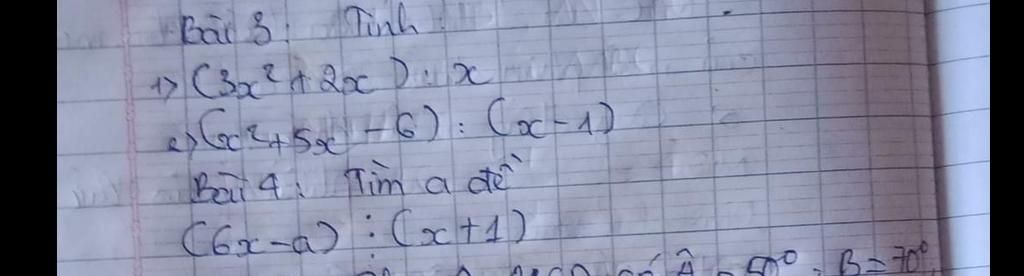 Bài 3: Tính
1) (3x² + 2x) : x
2) (x² + 5x - 6) : (x - 1)
Bài 4: Tìm a để
(6x - a) ⋮ (x + 1)
có Â = 50⁰, B = 70⁰